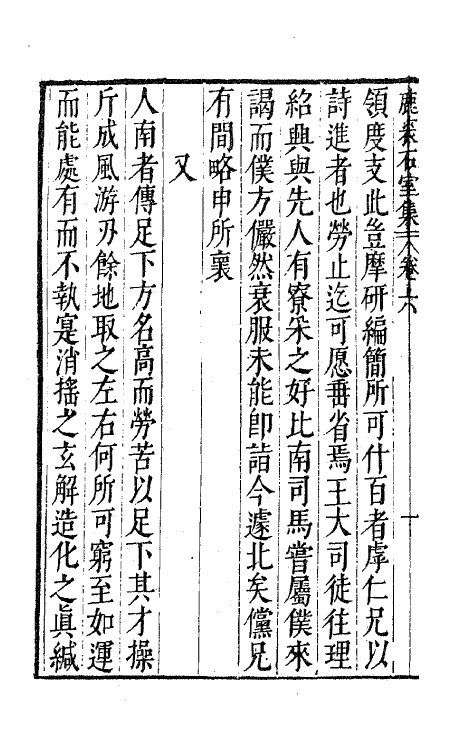 鹿裘石室集 卷六 一
領度支此豈摩研編簡所可什百者虖仁兄以
詩進者也勞止迄可愿番省焉王大司徒往理
紹興與先人有寮寀之好比南司馬嘗屬僕來
謁而僕方儼然衰服未能卽詣今遽北矣儻兄
有間略申所襄
又
人南者傳足下方名高而勞苦以足下其才操
斤成風游刃餘地取之左右何所可窮至如運
而能處有而不執寔消搖之玄解造化之眞緘